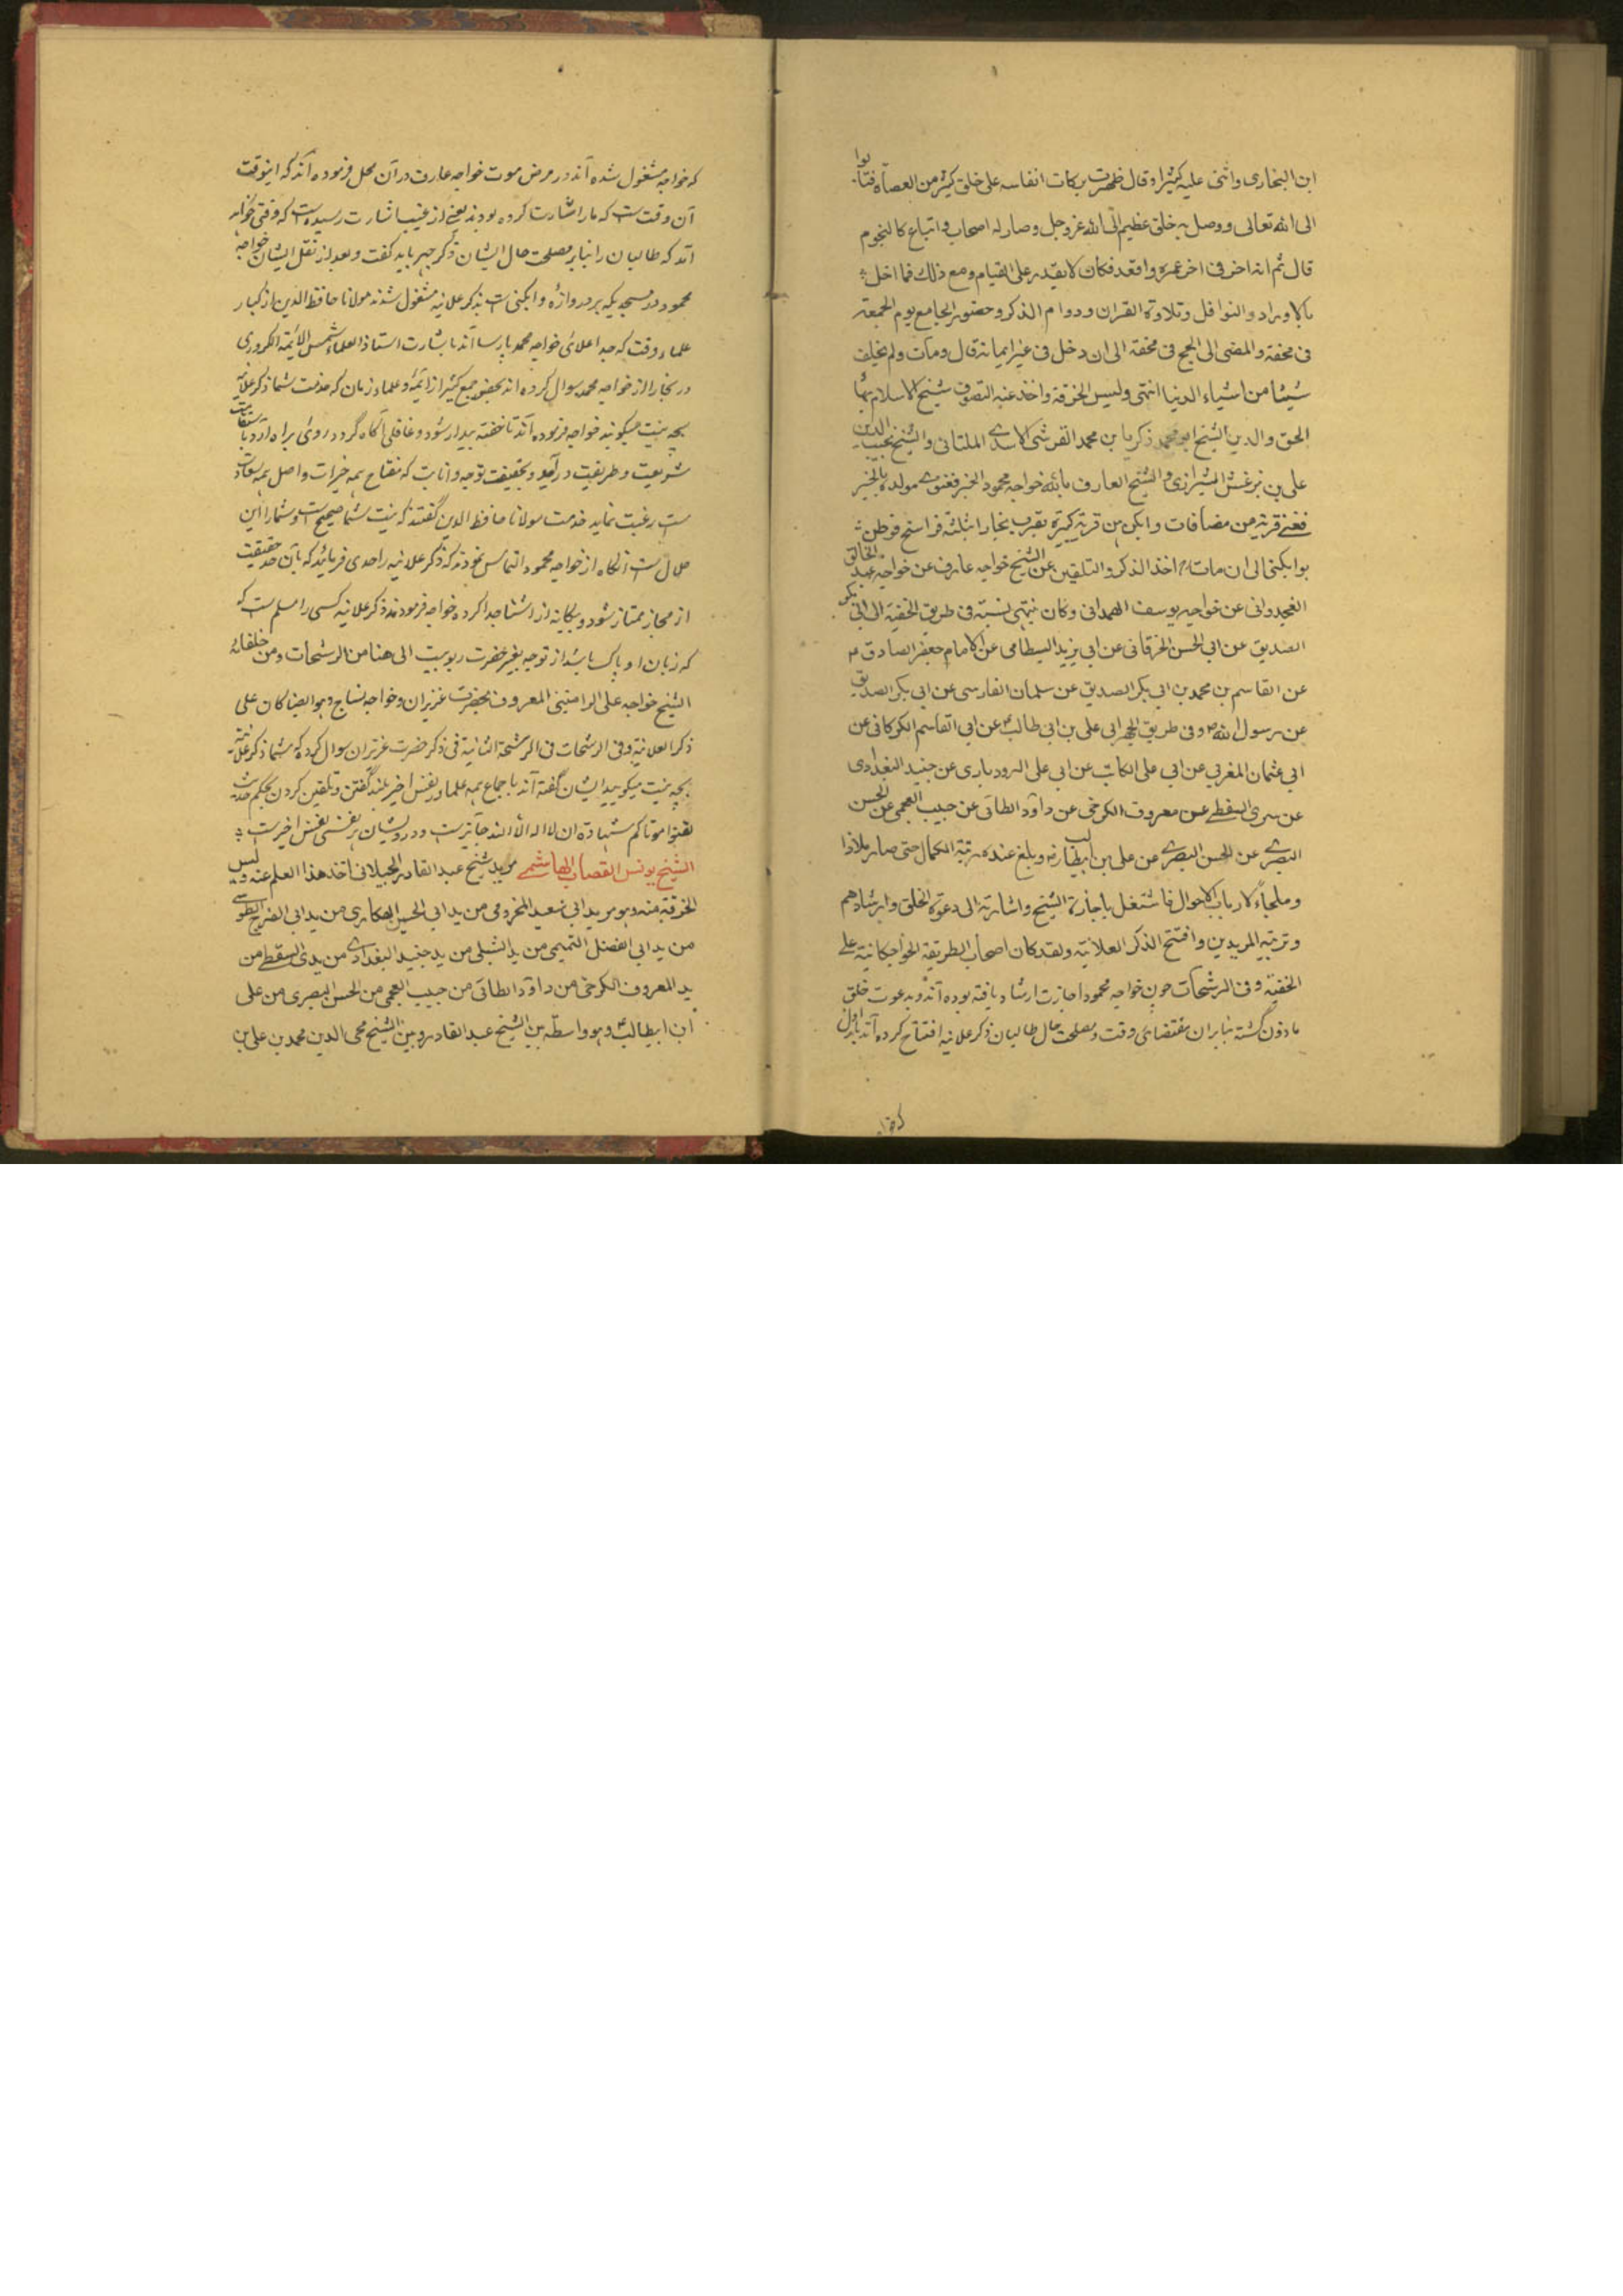 ابن النجاری واثنی علیه کثیرا وقال ظهرت برکات انفاسه علی خلق کثیر من العصاة فتابوا
الی الله تعالی ووصل به خلق عظیم الی الله عز وجل وصار له اصحاب واتباع کالنجوم
قال ثم انه اضر فی اخر عمره واقعد فکان لا یقدر علی القیام ومع ذلک فما اخل
بالاوراد والنوافل وتلاوة القران ودوام الذکر وحضور الجامع یوم الجمعة
فی محفة والمضی الی الحج فی محفة الی ان دخل فی عشر المایة قال ومات ولم یخلف
شیئا من اشیاء الدنیا انتهی ولبس الخرقة واخذ عنه التصوف شیخ الاسلام بهاء
الحق والدین الشیخ ابو محمد زکریا بن محمد القرشی الاسدی الملتانی والشیخ نجیب الدین
علی بن بزغش الشیرازی والشیخ العارف بالله خواجه محمود الخیر فغنوی مولده بالخیر
فغنی قریة من مضافات وابکن من قریة کبیرة بقرب بخارا ثلثة فراسخ فوطن
بوابکنی الی ان مات اخذ الذکر والتلقین عن الشیخ خواجه عارف عن خواجه عبد الخالق
الغجدوانی عن خواجه یوسف الهمدانی وکان ینتهی نسبته فی طریق الخفیة الی ابی بکر
الصدیق عن ابی الحسن الخرقانی عن ابی یزید البسطامی عن الامام جعفر الصادق
عن القاسم بن محمد بن ابی بکر الصدیق عن سلمان الفارسی عن ابی بکر الصدیق
عن رسول الله وفی طریق الجهر الی علی بن ابی طالب عن ابی القاسم الکرکانی عن
ابی عثمان المغربی عن ابی علی الکاتب عن ابی علی الرودباری عن جنید البغدادی
عن سری السقطی عن معروف الکرخی عن داود الطائی عن حبیب العجمی عن الحسن
البصری عن الحسن البصری عن علی بن ابیطالب وبلغ عنده رتبة الکمال حتی صار ملاذا
وملجاء لارباب الاحوال فاشتغل باجازة الشیخ واشارته الی دعوة الخلق وارشادهم
وتربیة المریدین وافتتح الذکر العلانیة ولقد کان اصحاب الطریقة الخواجکانیة علی
الخفیة وفی الرشحات چون خواجه محمود اجازت ارشاد یافته بوده اند و بدعوت خلق
ماذون گشته بنابران مقتضای وقت و مصلحت حال طالبان ذکر علانیه افتتاح کرده اند باول
که خواجه مشغول شده اند در مرض موت خواجه عارف در آن محل فرموده اند که اینوقت
آن وقت ست که ما را اشارت کرده بودند یعنی از غیب اشارت رسیده است که وقتی خواهد
آمد که طالبان را بنابر مصلحت حال ایشان ذکر جهر باید گفت و بعد از نقل ایشان خواجه
محمود در مسجدیکه بر دروازه وابکنی است بذکر علانیه مشغول شدند مولانا حافظ الدین از کبار
علماء وقت که جد اعلای خواجه محمد پارسا اند باشارت استاذ العلماء شمس الائمه الکردری
در بخارا از خواجه محمد سوال کرده اند بحضور جمع کثیر از ائمه و علماء زمان که خدمت شما ذکر علانیه
بچه نیت میگویند خواجه فرموده اند تا خفته بیدار شود و غافلی آگاه گردد روی براه آرد باستقامت
شریعت و طریقت درآید و بحقیقت توبه و انابت که مفتاح همه خیرات و اصل همه سعادت
ست رغبت نماید خدمت مولانا حافظ الدین گفتند که نیت شما صحیح است و شما را این
حلال ست آنگاه از خواجه محمود التماس نمودند که ذکر علانیه را حدی فرمایند که بآن حد حقیقت
از مجاز ممتاز شود و بیگانه از آشنا جدا گردد خواجه فرمودند ذکر علانیه کسی را مسلم ست که
که زبان او پاک باشد از توجه بغیر حضرت ربوبیت الی هنا من الرشحات ومن خلفائه
الشیخ خواجه علی الرامتینی المعروف بحضرت عزیزان وخواجه نساج وهو ایضا کان علی
ذکر العلانیة وفی الرشحات فی الرشحة الثانیة فی ذکر حضرت عزیزان سوال کرده که شما ذکر علانیه
بچه نیت میگویید ایشان گفته اند باجماع همه علما در نفس اخیر بلند گفتن و تلقین کردن بحکم حدیث
لقنوا موتاکم شهادة ان لا اله الا الله جایز ست و درویشان هر نفسی نفس اخیرست
الشیخ یونس القصاب الهاشمی مرید شیخ عبد القادر الجیلانی اخذ هذا العلم عنه ولبس
الخرقة منه وهو من ید ابی سعید المخرومی من ید ابی الحسن الهکاری من ید ابی الفرج الطوسی
من ید ابی الفضل التمیمی من ید الشبلی من ید جنید البغدادی من ید السقطی من
ید المعروف الکرخی من داود الطائی من حبیب العجمی من الحسن البصری من علی
ابن ابیطالب وهو واسطه بین الشیخ عبد القادر وبین الشیخ محی الدین محمد بن علی بن